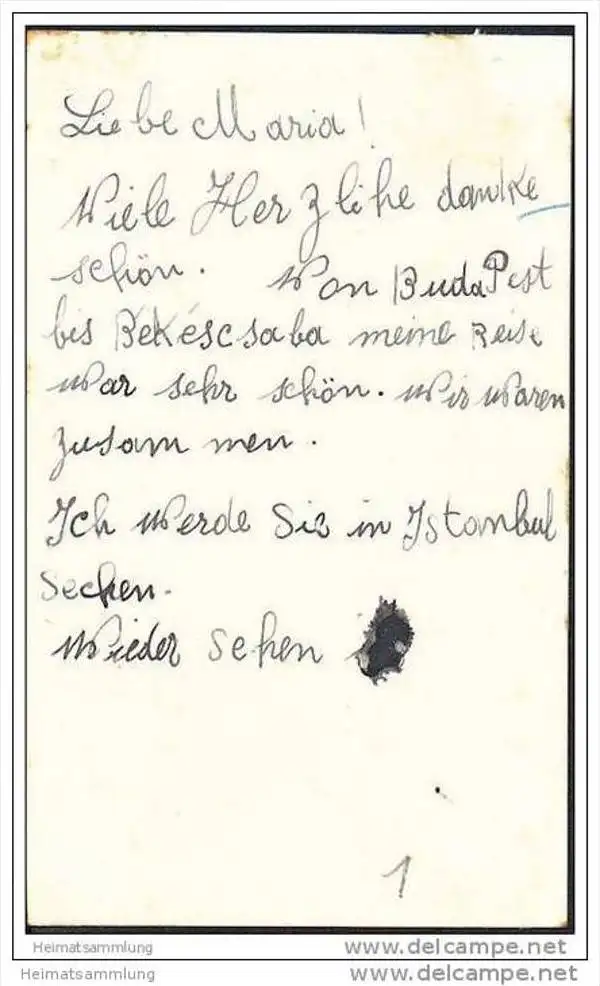 Liebe Maria!
Viele Herzlihe danke
schön. Von BudaPest
bis Békéscsaba meine Reise
War sehr schön. Wir Waren
zusam men.
Ich Werde Sie in Istanbul
Sechen.
Wieder Sehen
1
Heimatsammlung www.delcampe.net
Heimatsammlung www.delcampe.net